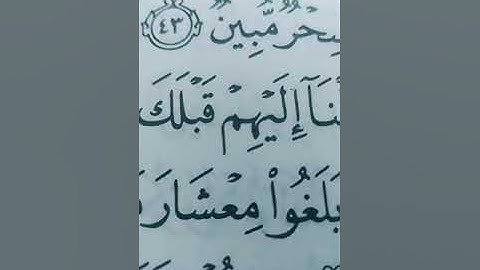 سِحْرٌ مُّبِينٌ ٤٣
نَآ إِلَيْهِمْ قَبْلَكَ
بَلَغُوا۟ مِعْشَارَ